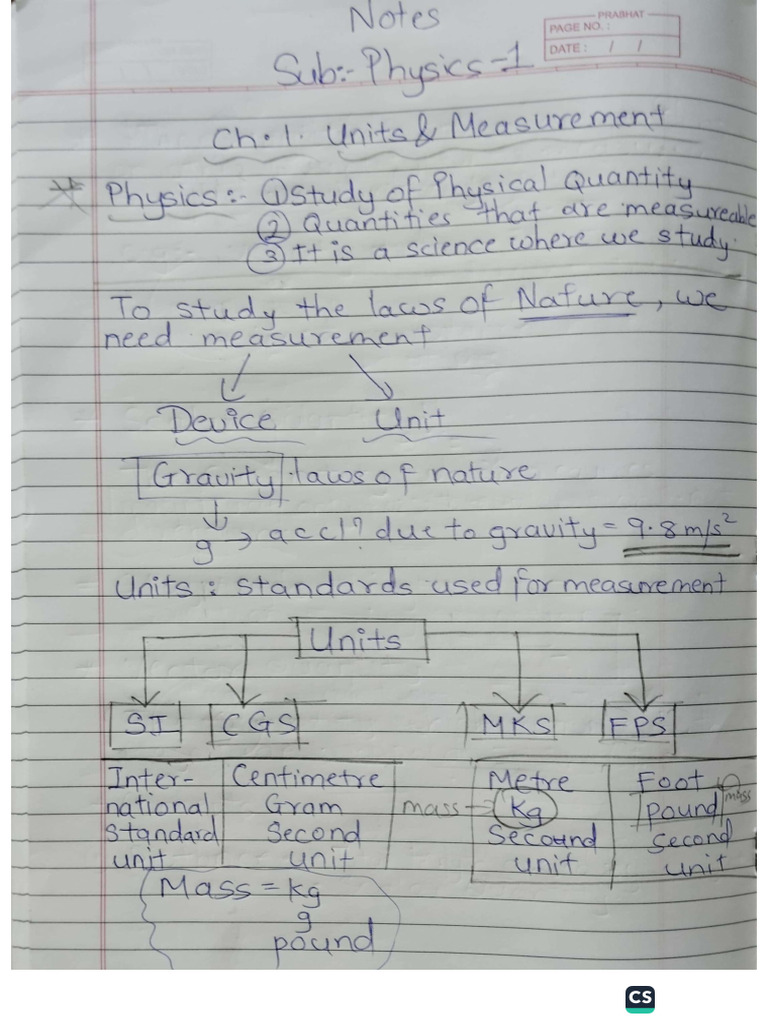 Notes
PRABHAT
PAGE NO. :
DATE : / /
Sub:- Physics-1
Ch.1. Units & Measurement
Physics:- ① Study of Physical Quantity
② Quantities that are measureable
③ It is a science where we study.
To study the laws of Nature, we
need measurement
Device Unit
Gravity laws of nature
g → accln due to gravity = 9.8 m/s²
Units : standards used for measurement
Units
SI CGS MKS FPS
Inter- Centimetre Metre Foot
national Gram mass → Kg pound mass
standard Second Secound Second
unit unit unit unit
Mass = kg
g
pound
CS